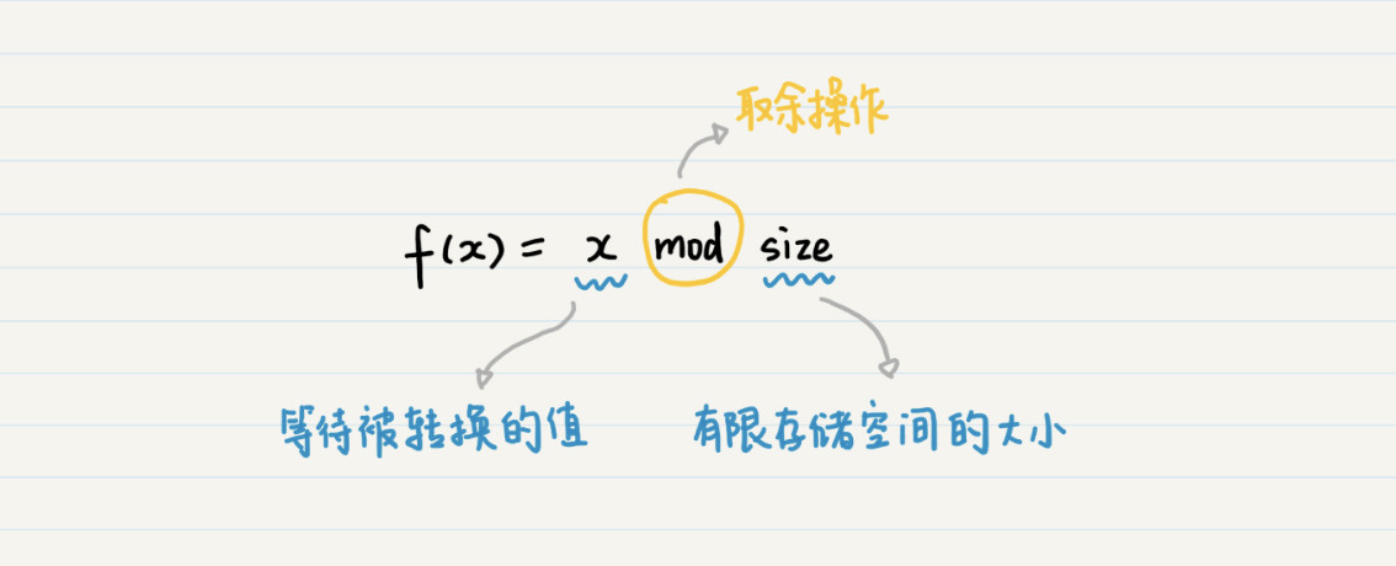 取余操作
f(x) = x mod size
等待被转换的值
有限存储空间的大小